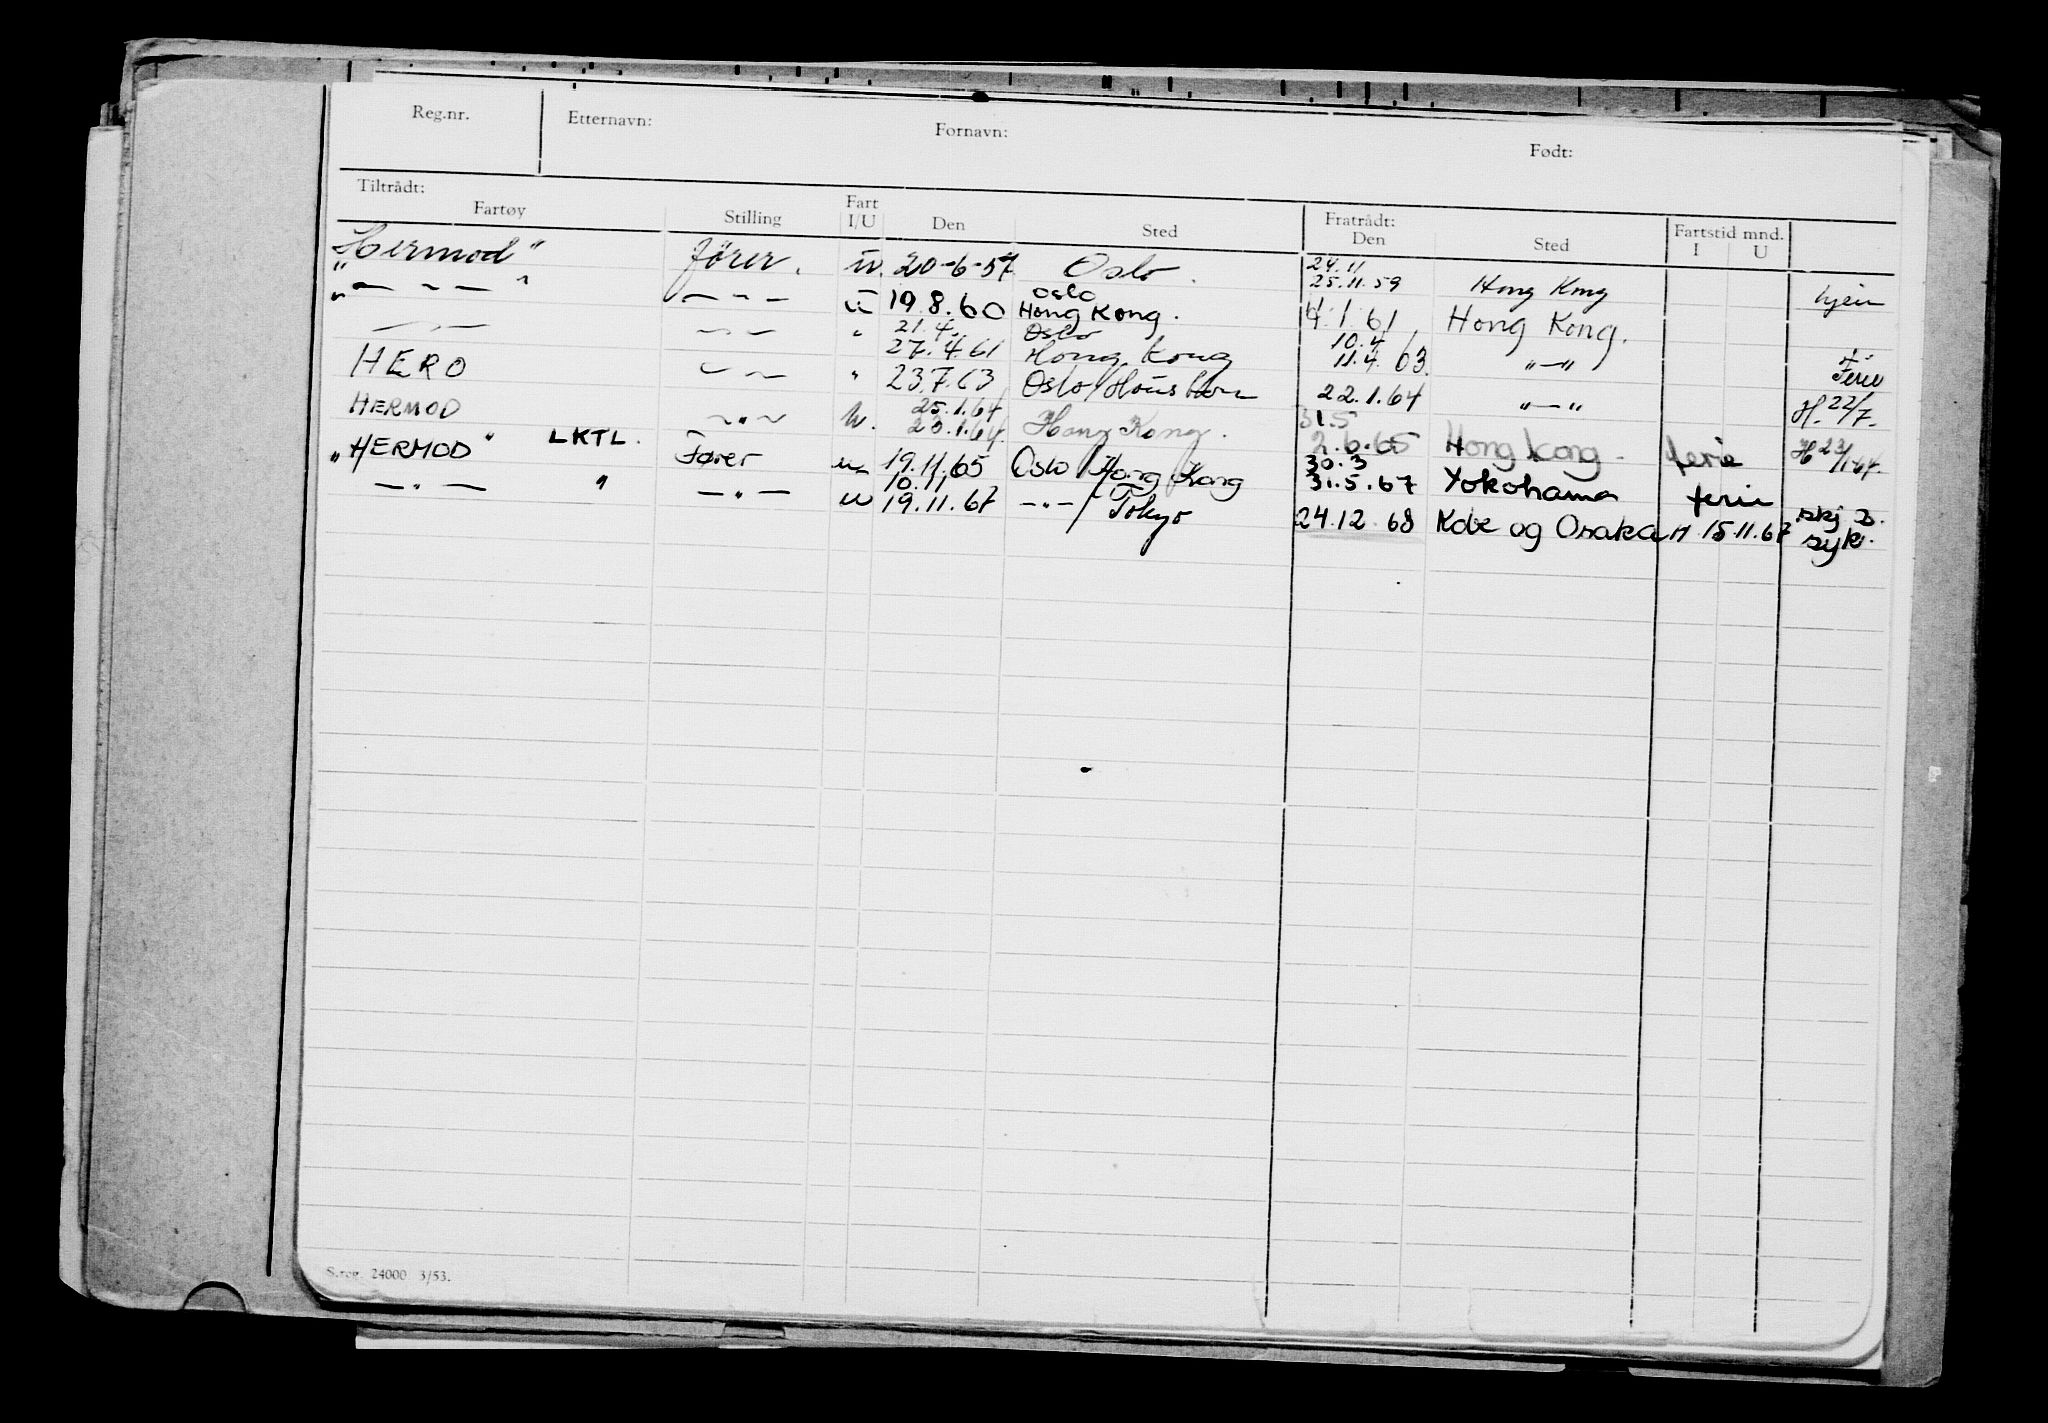 Reg.nr. Etternavn: Fornavn: Født:
Tiltrådt: Fratrådt:
Fartøy Stilling Fart I/U Den Sted Den Sted Fartstid mnd. I U
"Hermod" fører. u. 20-6-57 Oslo. 24.11 25.11.59 Hong Kong hjem
" — " — " — " — u 19.8.60 Oslo Hong Kong. 4.1.61 Hong Kong.
— " — — " — " 21.4. 27.4.61 Oslo Hong Kong 10.4 11.4.63. — " — Ferie
HERO — " — " 23.7.63 Oslo/Houston 22.1.64 " — " H. 22/7.
HERMOD — " — u. 25.1.64 23.1.64. Hong Kong. 31.5 2.6.65 Hong Kong. ferie H 23/1-64.
"HERMOD" LKTL. Fører u 19.11.65 Oslo/Hong Kong 30.3 31.5.67 Yokohama ferie
— " — " — " — u 10.11 19.11.67 — " — / Tokyo 24.12.68 Kobe og Osaka H 15.11.67 skj B. syk.
S.reg. 24000 3/53.